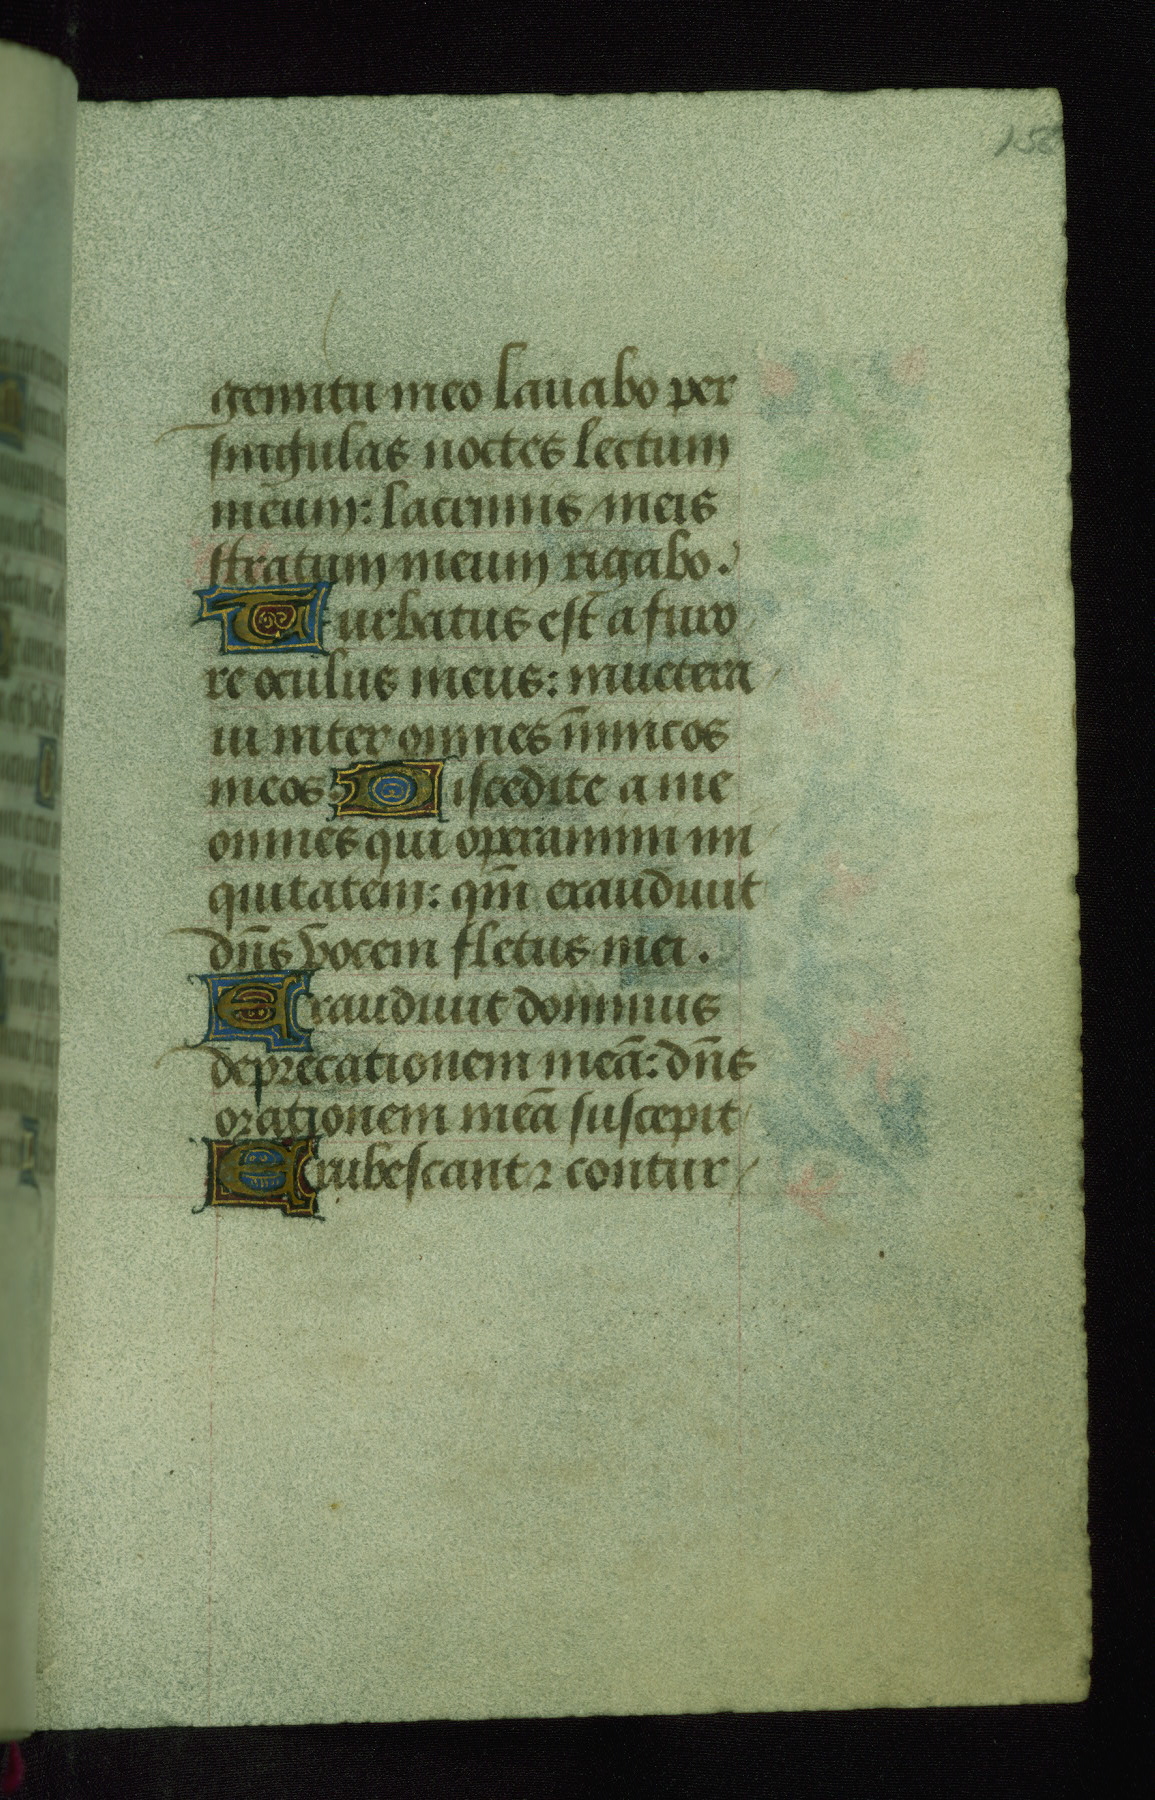 158
gemitu meo lauabo per
singulas noctes lectum
meum: lacrimis meis
stratum meum rigabo.
Turbatus est a furo
re oculus meus: inuetera
ui inter omnes inimicos
meos Discedite a me
omnes qui operamini ini
quitatem: qm̄ exaudiuit
dn̄s vocem fletus mei.
Exaudiuit dominus
deprecationem meā: dn̄s
orationem meā suscepit
Erubescant ⁊ contur